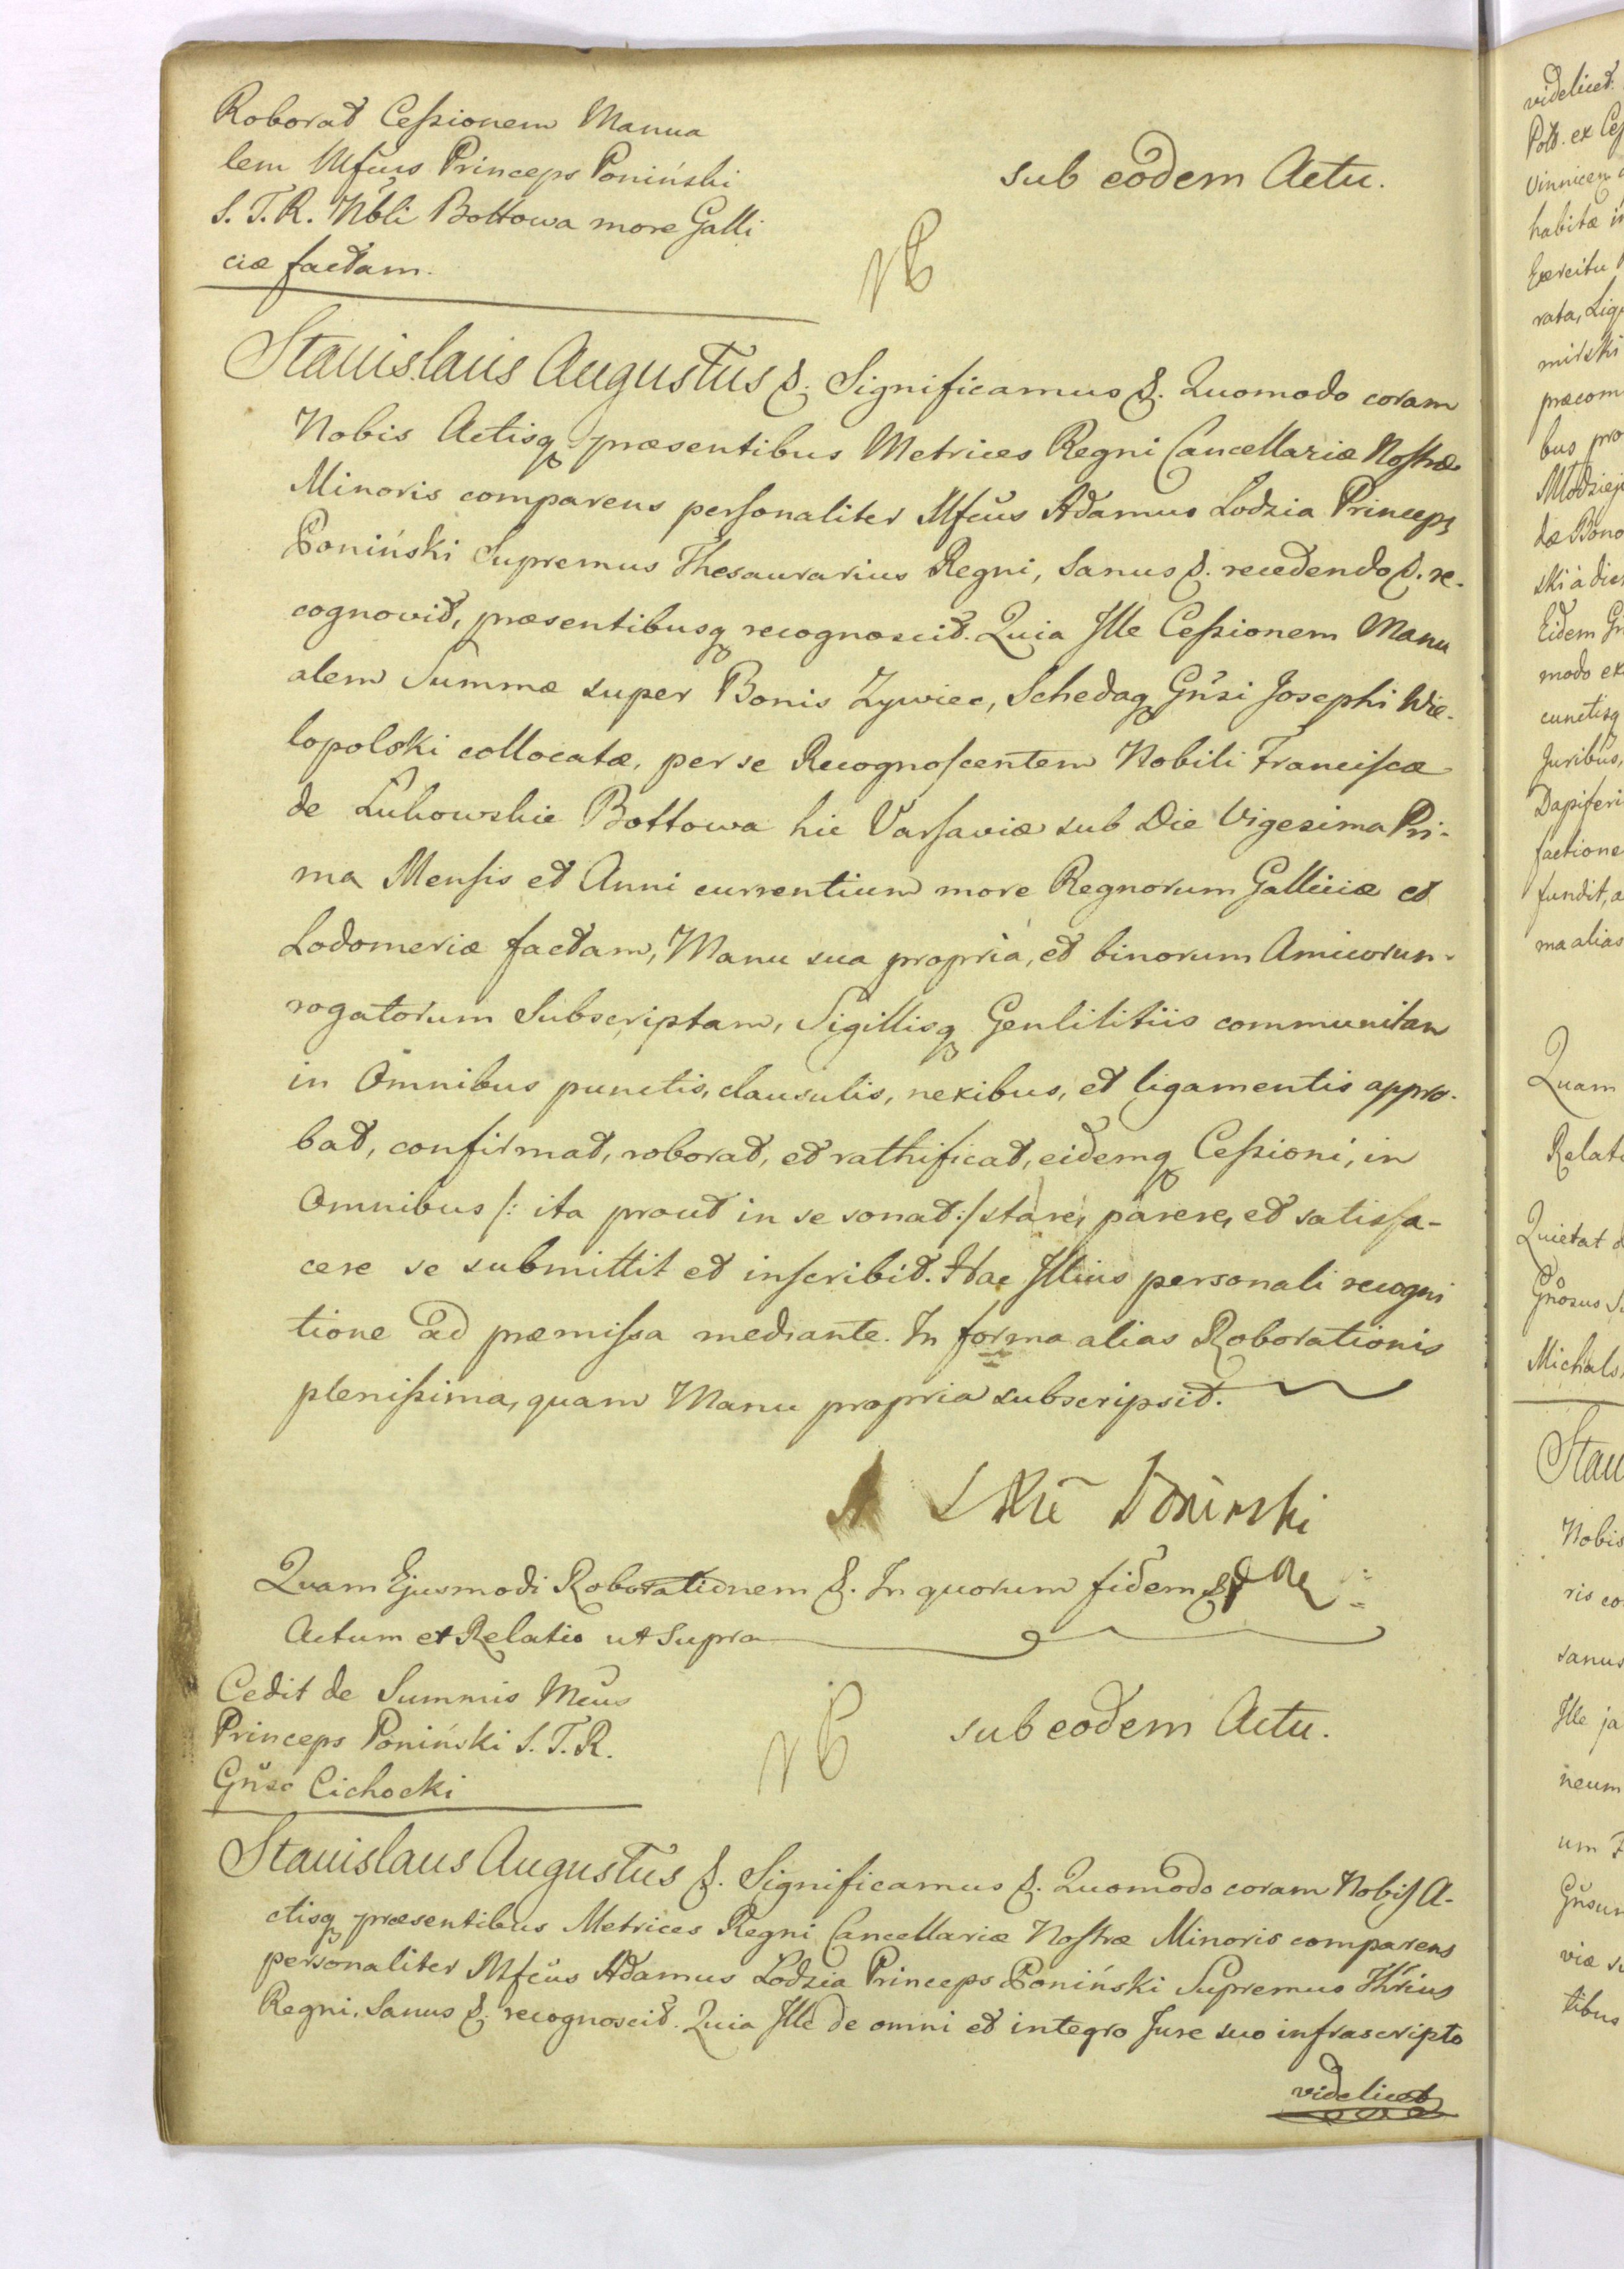 Roborat Cessionem Manua
lem Mfcus Princeps Poniński
S. T. R. Nbli Bottowa more Galli
ciæ factam.
sub eodem Actu.
Stanislaus Augustus &. Significamus &. Quomodo coram
Nobis Actisq præsentibus Metrices Regni Cancellariæ Nostræ
Minoris comparens personaliter Mfcus Adamus Lodzia Princeps
Poniński Supremus Thesaurarius Regni, Sanus &. recedendo &. re-
cognovit, præsentibusq recognoscit. Quia Ille Cessionem Manu
alem Summæ super Bonis Zywiec, Schedaq Gnsi Josephi Wie-
lopolski collocatæ, per se Recognoscentem Nobili Franciscæ
de Luhowskie Bottowa hic Varsaviæ sub Die Vigesima Pri-
ma Mensis et Anni currentium more Regnorum Galliciæ et
Lodomeriæ factam, Manu sua propria, et binorum Amicorum
rogatorum Subscriptam, Sigillisq Gentilitiis communitam
in Omnibus punctis, clausulis, nexibus, et ligamentis appro-
bat, confirmat, roborat, et rathificat, eidemq Cessioni, in
Omnibus /: ita prout in se sonat :/ stare, parere, et satisfa-
cere se submittit et inscribit. Hac Illius personali recogni
tione ad præmissa mediante. In forma alias Roborationis
plenissima, quam Manu propria subscripsit.
Poninski
Quam Ejusmodi Roborationem &. In quorum fidem &
Actum et Relatio ut Supra
Cedit de Summis Mcus
Princeps Poniński S. T. R.
Gnso Cichocki
sub eodem Actu.
Stanislaus Augustus &. Significamus &. Quomodo coram Nobis A-
ctisq præsentibus Metrices Regni Cancellariæ Nostræ Minoris comparens
personaliter Mfcus Adamus Lodzia Princeps Poniński Supremus Thrius
Regni, Sanus &. recognoscit. Quia Ille de omni et integro Jure suo infrascripto
videlicet
videlicet
Vinnicem
habitæ
Exercitu
rata,
mirski
præcom
bus pro
dæ Bono
ski à
Eidem
modo
cunctisq
Juribus,
Dapiferi
factione
fundit,
ma alias
Quam
Relat
Quietat
Gnosus
Michals
Stan
Nobis
ris co
sanus
Ille ja
neum
um
Gnsum
viæ
tibus